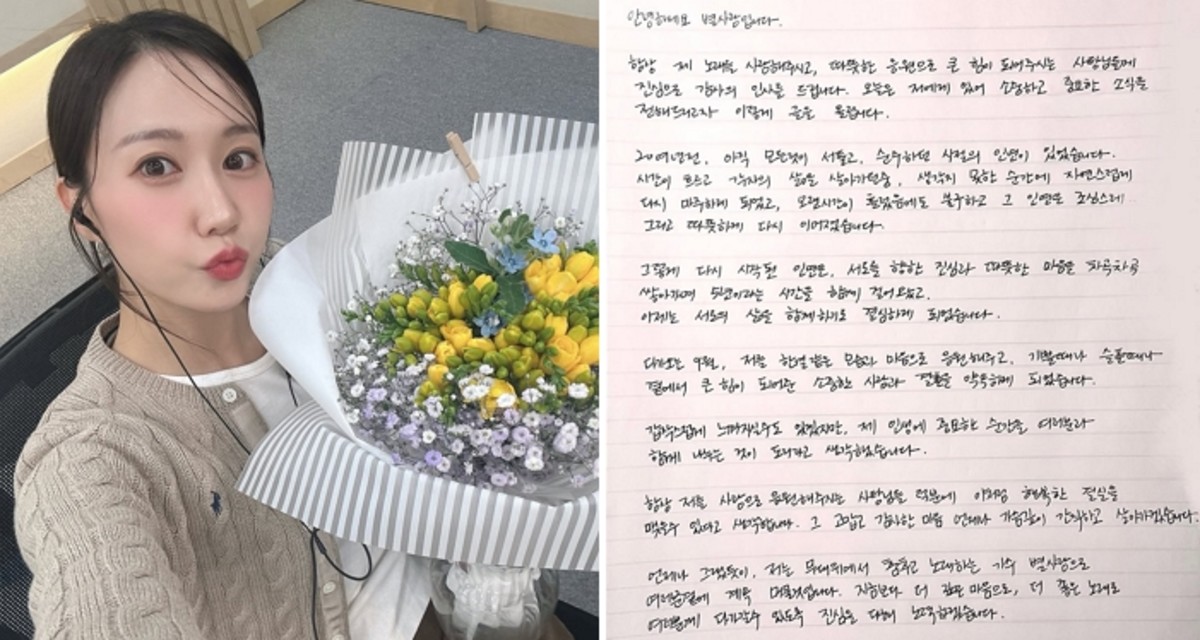 안녕하세요 별사랑입니다.
항상 제 노래를 사랑해주시고, 따뜻한 응원으로 큰 힘이 되어주시는 사랑님들께
진심으로 감사의 인사를 드립니다. 오늘은 저에게 있어 소중하고 중요한 소식을
전해드리고자 이렇게 글을 올립니다.
20여년전, 아직 모든것이 서툴고, 순수하던 시절의 인연이 있었습니다.
시간이 흐르고 각자의 삶을 살아가던중, 생각지 못한 순간에 자연스럽게
다시 마주하게 되었고, 오랜시간이 흘렀음에도 불구하고 그 인연은 조심스레..
그리고 따뜻하게 다시 이어졌습니다.
그렇게 다시 시작된 인연은, 서로를 향한 진심과 따뜻한 마음을 차곡차곡
쌓아가며 5년이라는 시간을 함께 걸어왔고,
이제는 서로의 삶을 함께하기로 결심하게 되었습니다.
다가오는 9월, 저를 한결같은 모습과 마음으로 응원해주고, 기쁠때나 슬플때나
곁에서 큰 힘이 되어준 소중한 사람과 결혼을 약속하게 되었습니다.
갑작스럽게 느껴지실수도 있겠지만, 제 인생에 중요한 순간을 여러분과
함께 나누는 것이 도리라고 생각했습니다.
항상 저를 사랑으로 응원해주시는 사랑님들 덕분에 이처럼 행복한 결실을
맺을수 있다고 생각합니다. 그 고맙고 감사한 마음 언제나 가슴깊이 간직하고 살아가겠습니다.
언제나 그랬듯이, 저는 무대위에서 춤추고 노래하는 가수 별사랑으로
여러분곁에 계속 머물겠습니다. 지금보다 더 깊은 마음으로, 더 좋은 노래로
여러분께 다가갈수 있도록 진심을 다해 노력하겠습니다.